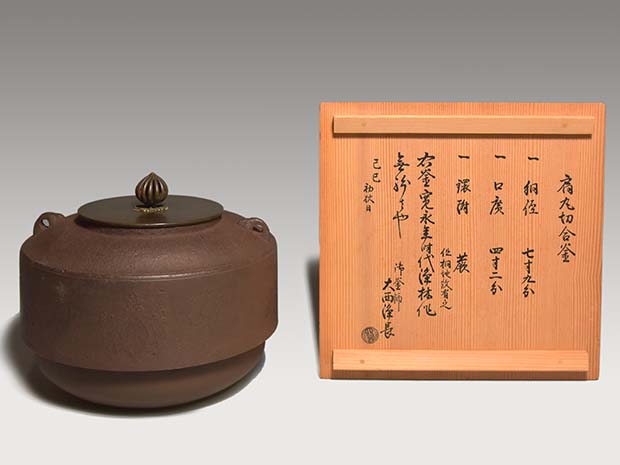 肩丸切合釜
一 胴径 七寸九分
一 口廣 四寸二分
一 鐶附 蕨
但桐地紋有之
右釜寛永年時代浄林作
無紛者也
御釜師
大西浄長
己巳
初秋日